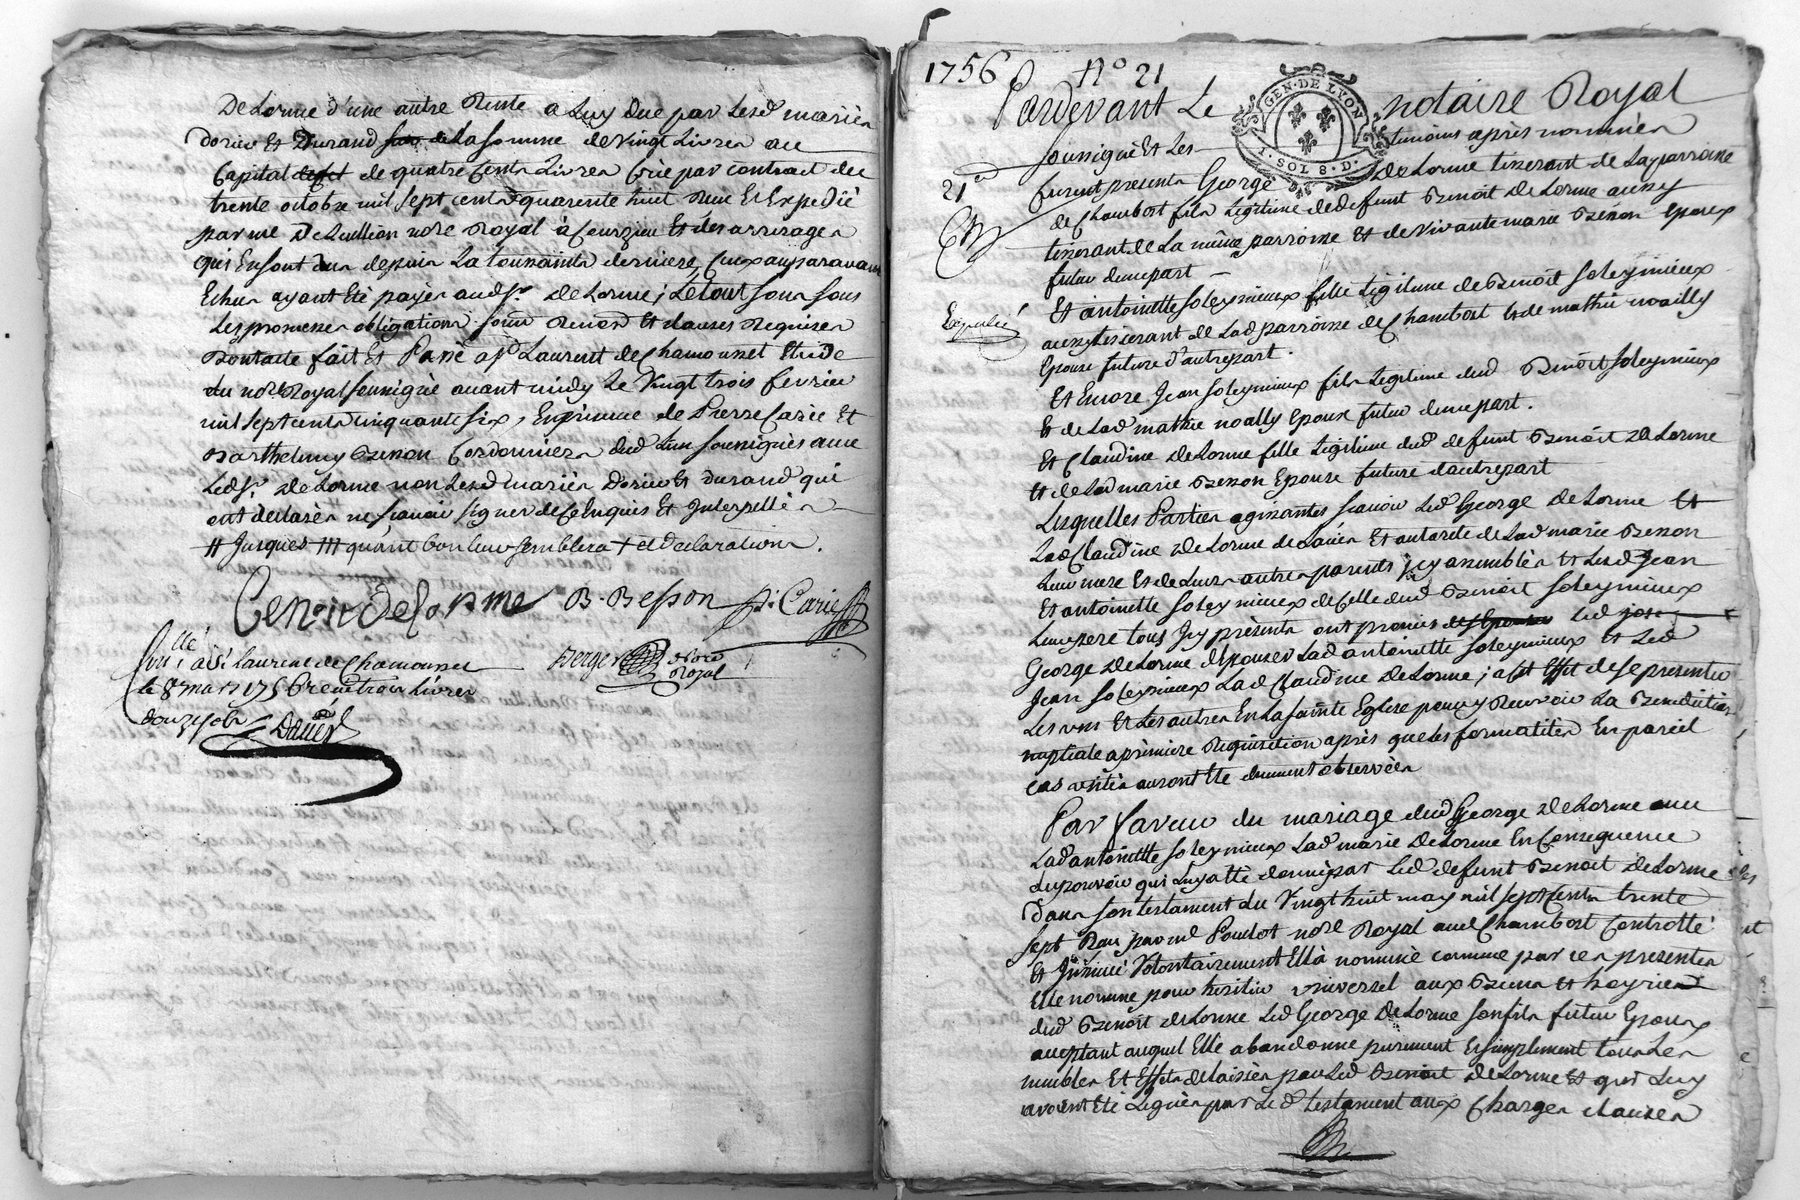 De Lorme d'une autre Rente a Luy due par Lesd mariés
Dorieu et Durand de La somme de vingt Livres au
Capital de quatre Cents Livres Créé par contract du
trente octobre mil sept cents quarente huit Reçu Et Expedié
par me Dehullion nore Royal à Et des arrerages
qui En sont dus depuis La toussaints derniere, Ceux auparavant
Echus ayant Eté payés audsr. De Lorme; Le tout sous sous
Les promesses obligations soum Renon Et clauses Requises
Dont acte fait Et Passé apd Laurent de Chamousset Etude
du nore Royal soussigné avant midy Le Vingt trois fevrier
mil sept cents cinquante six, En presence de Pierre Carié Et
Barthelmy Besson Cordonniers dud Lieu soussignés avec
Ledsr. De Lorme non Lesd mariés Dorieu Et Durand qui
ont declarés ne sçavoir signer de Ce Enquis Et Interpellés
# Jusques ### quant bon leur semblera + et declarations.
Benoit Delorme B. Besson P. Carié
Berger nore Royal
Conllé à St Laurent de Chamousset
le 8 mars 1756 Receu trois Livres
douze sols
1756 No 21
Pardevant Le notaire Royal
GEN. DE LYON
1. SOL 8. D.
soussigné Et Les temoins après nommés
21e
furent presents George De Lorme tisserant de La parroisse
de Chambost fils Legitime de defunt Benoit De Lorme aussy
tisserant de La même parroisse Et de vivante marie Besson Epoux
futur d'une part —
Et antoinette Soleymieux fille Legitime de Benoit Soleymieux
Expedié
aussy tisserant de Lad parroisse de Chambost Et de mathie noailly
Epouse future d'autre part.
Et Encore Jean Soleymieux fils Legitime dud Benoit Soleymieux
Et de Lad mathie noailly Epoux futur d'une part.
Et Claudine De Lorme fille Legitime dud defunt Benoit De Lorme
Et de Lad marie Besson Epouse future d'autre part
Lesquelles Parties agissantes sçavoir Led George De Lorme Et
Lad Claudine De Lorme de L'avis Et autorité de Lad marie Besson
Leur mere Et de Leurs autres parents icy assemblés Et Led Jean
Et antoinette Soleymieux de Celle dud Benoit Soleymieux
Leur pere tous Icy présents ont promis Led
George De Lorme d'Epouser Lad antoinette Soleymieux Et Led
Jean Soleymieux Lad Claudine De Lorme; a Cet Effet de se presenter
Les uns Et Les autres En La sainte Eglise pour y Recevoir La Benediction
nuptiale a premiere Requisition après que Les formalités En pareil
cas usités auront Eté duement observées
Par faveur du mariage dud George De Lorme avec
Lad antoinette Soleymieux Lad marie De Lorme En Consequence
du pouvoir qui Luy a Eté donné par Led defunt Benoit De Lorme
dans son testament du Vingt huit may mil sept Cents trente
sept Reçu par me Poulot nore Royal aud Chambost Controllé
Et Insinué Volontairement Ella nommée comme par ces presentes
Elle nomme pour heritier universel aux Biens Et hoyrie
dud Benoit De Lorme Led George De Lorme son fils futur Epoux
acceptant auquel Elle abandonne purement Et simplement tous Les
meubles Et Effets delaissés par Led Benoit De Lorme Et qui Luy
avoient Eté Legués par Led testament aux Charges clauses